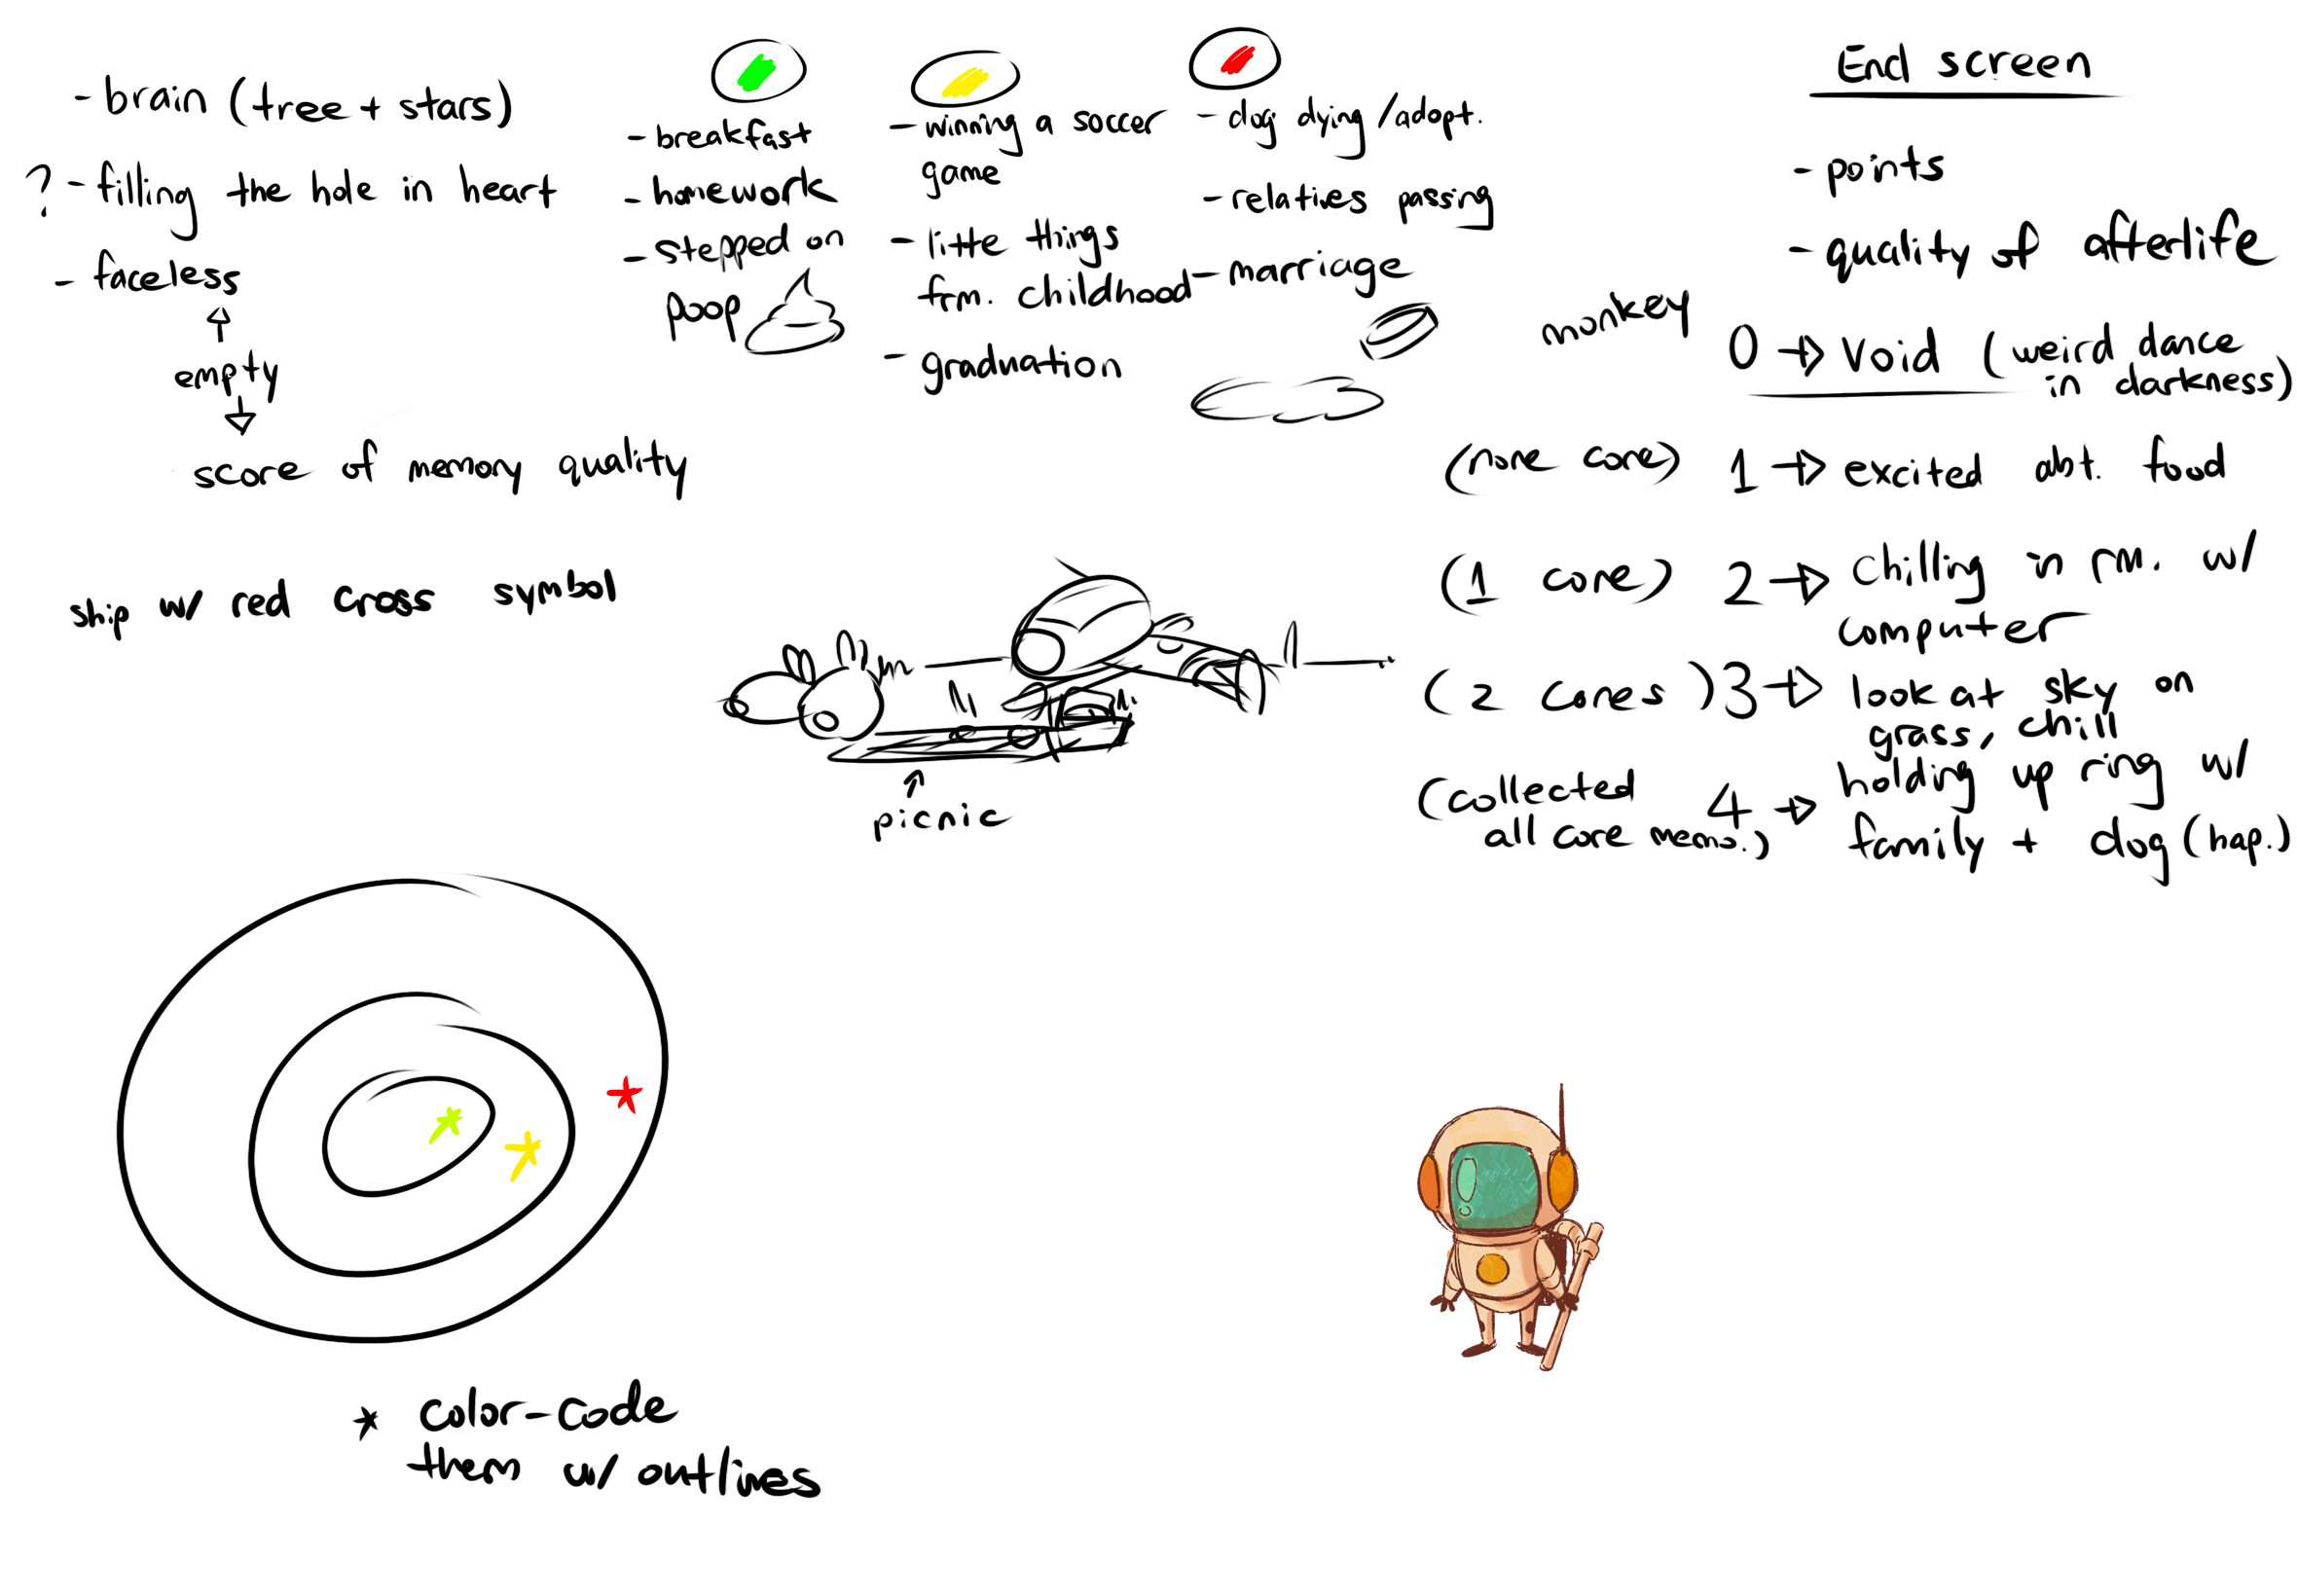 - brain (tree + stars)
? - filling the hole in heart
- faceless
empty
score of memory quality
ship w/ red cross symbol
- breakfast
- homework
- stepped on
poop
- winning a soccer
game
- little things
frm. childhood
- graduation
- dog dying / adopt.
- relatives passing
- marriage
monkey
End screen
- points
- quality of afterlife
0 → Void (weird dance
in darkness)
(none core) 1 → excited abt. food
(1 core) 2 → chilling in rm. w/
computer
(2 cores) 3 → look at sky on
grass, chill
(collected 4 → holding up ring w/
all core mems.) family + dog (hap.)
picnic
* color-code
them w/ outlines